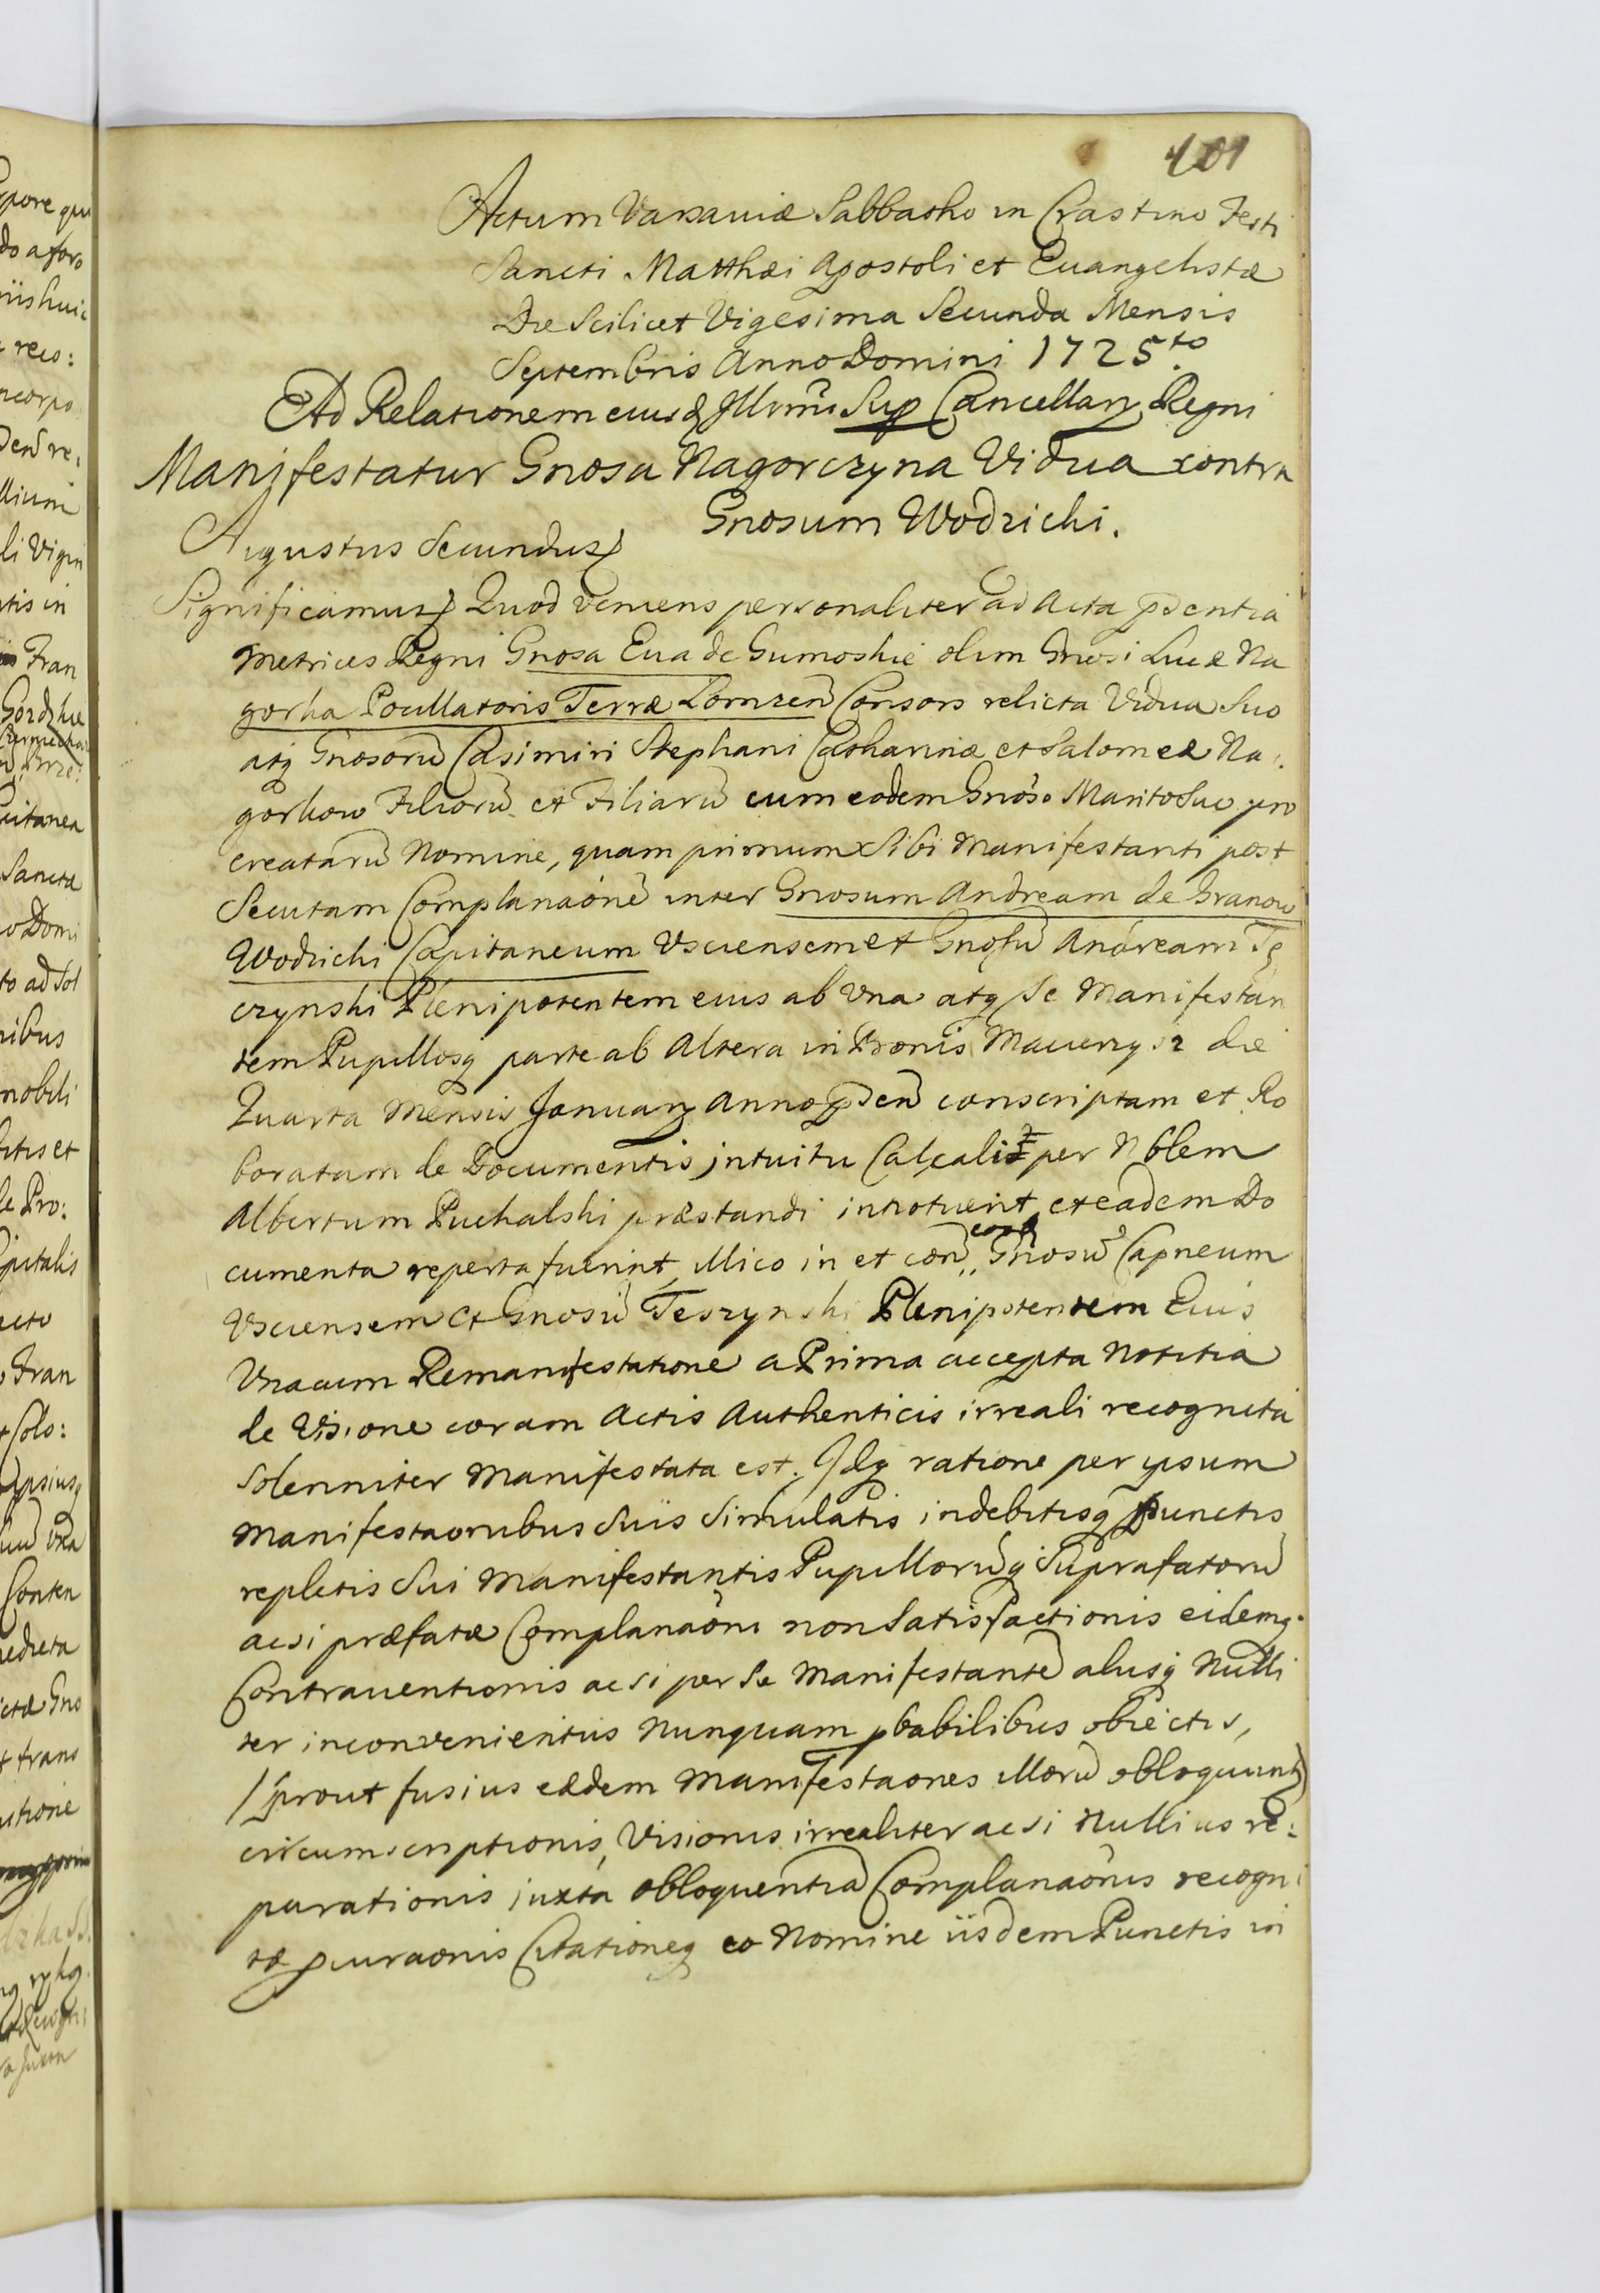 401
Actum Varsaviæ Sabbatho in Crastino Festi
Sancti Matthæi Apostoli et Euangelistæ
Die Scilicet Vigesima Secunda Mensis
Septembris Anno Domini 1725to
Ad Relationem eiusd Illrmi Sup Cancellary Regni
Manifestatur Gnosa Nagorczyna Vidua contra
Gnosum Wodzicki.
Augustus Secundus
Significamus Quod veniens personaliter ad Acta pdentia
Metrices Regni Gnosa Eua de Gumoskie olim Gnosi Lucæ Na
gorka Pocillatoris Terræ Lomzen Consors relicta Vidua Suo
atq Gnosorū Casimiri Stephani Catharinæ et Salomeæ Na
gorkow Filiorū et Filiarū cum eodem Gnoso Marito Suo pro
creatarū Nomine, quam primum Sibi Manifestanti post
Secutam Complanaōnē inter Gnosum Andream de Granow
Wodzicki Capitaneum Vsciensem et Gnosū Andream Te
czynski Plenipotentem eius ab Vna atq Se Manifestan
tem Pupillosq parte ab Altera in Bonis die
Quarta Mensis January Anno pden conscriptam et Ro
boratam de Documentis intuitu per Nblem
Albertum Puchalski præstandi intotuerit et eadem Do
cumenta reperta fuerint, illico in et con Gnosū Capneum
Vsciensem et Gnosū Teszynski Plenipotentem Eius
Vnacum Remanifestatione a Prima accepta Notitia
de Visione coram Actis Authenticis irreali recognita
Solenniter Manifestata est. Idq ratione per ipsum
Manifestaonibus Suis Simulatis indebitisq Punctis
repletis Sui Manifestantis Pupillorūq Suprafatorū
acsi præfatæ Complanaōni non Satisfactionis eidemq
Contrauentionis acsi per Se Manifestantē alusq Nulli
ter inconvenientiis Nunquam pbabilibus obiectis,
/prout fusius eædem Manifestaones illorū obloquunt/
circumscriptionis, Visionis irrealiter acsi Nullius re
parationis iuxta obloquentiā Complanaōnis recogni
tæ pcuraonis Citationeq eo Nomine iisdem Punctis in